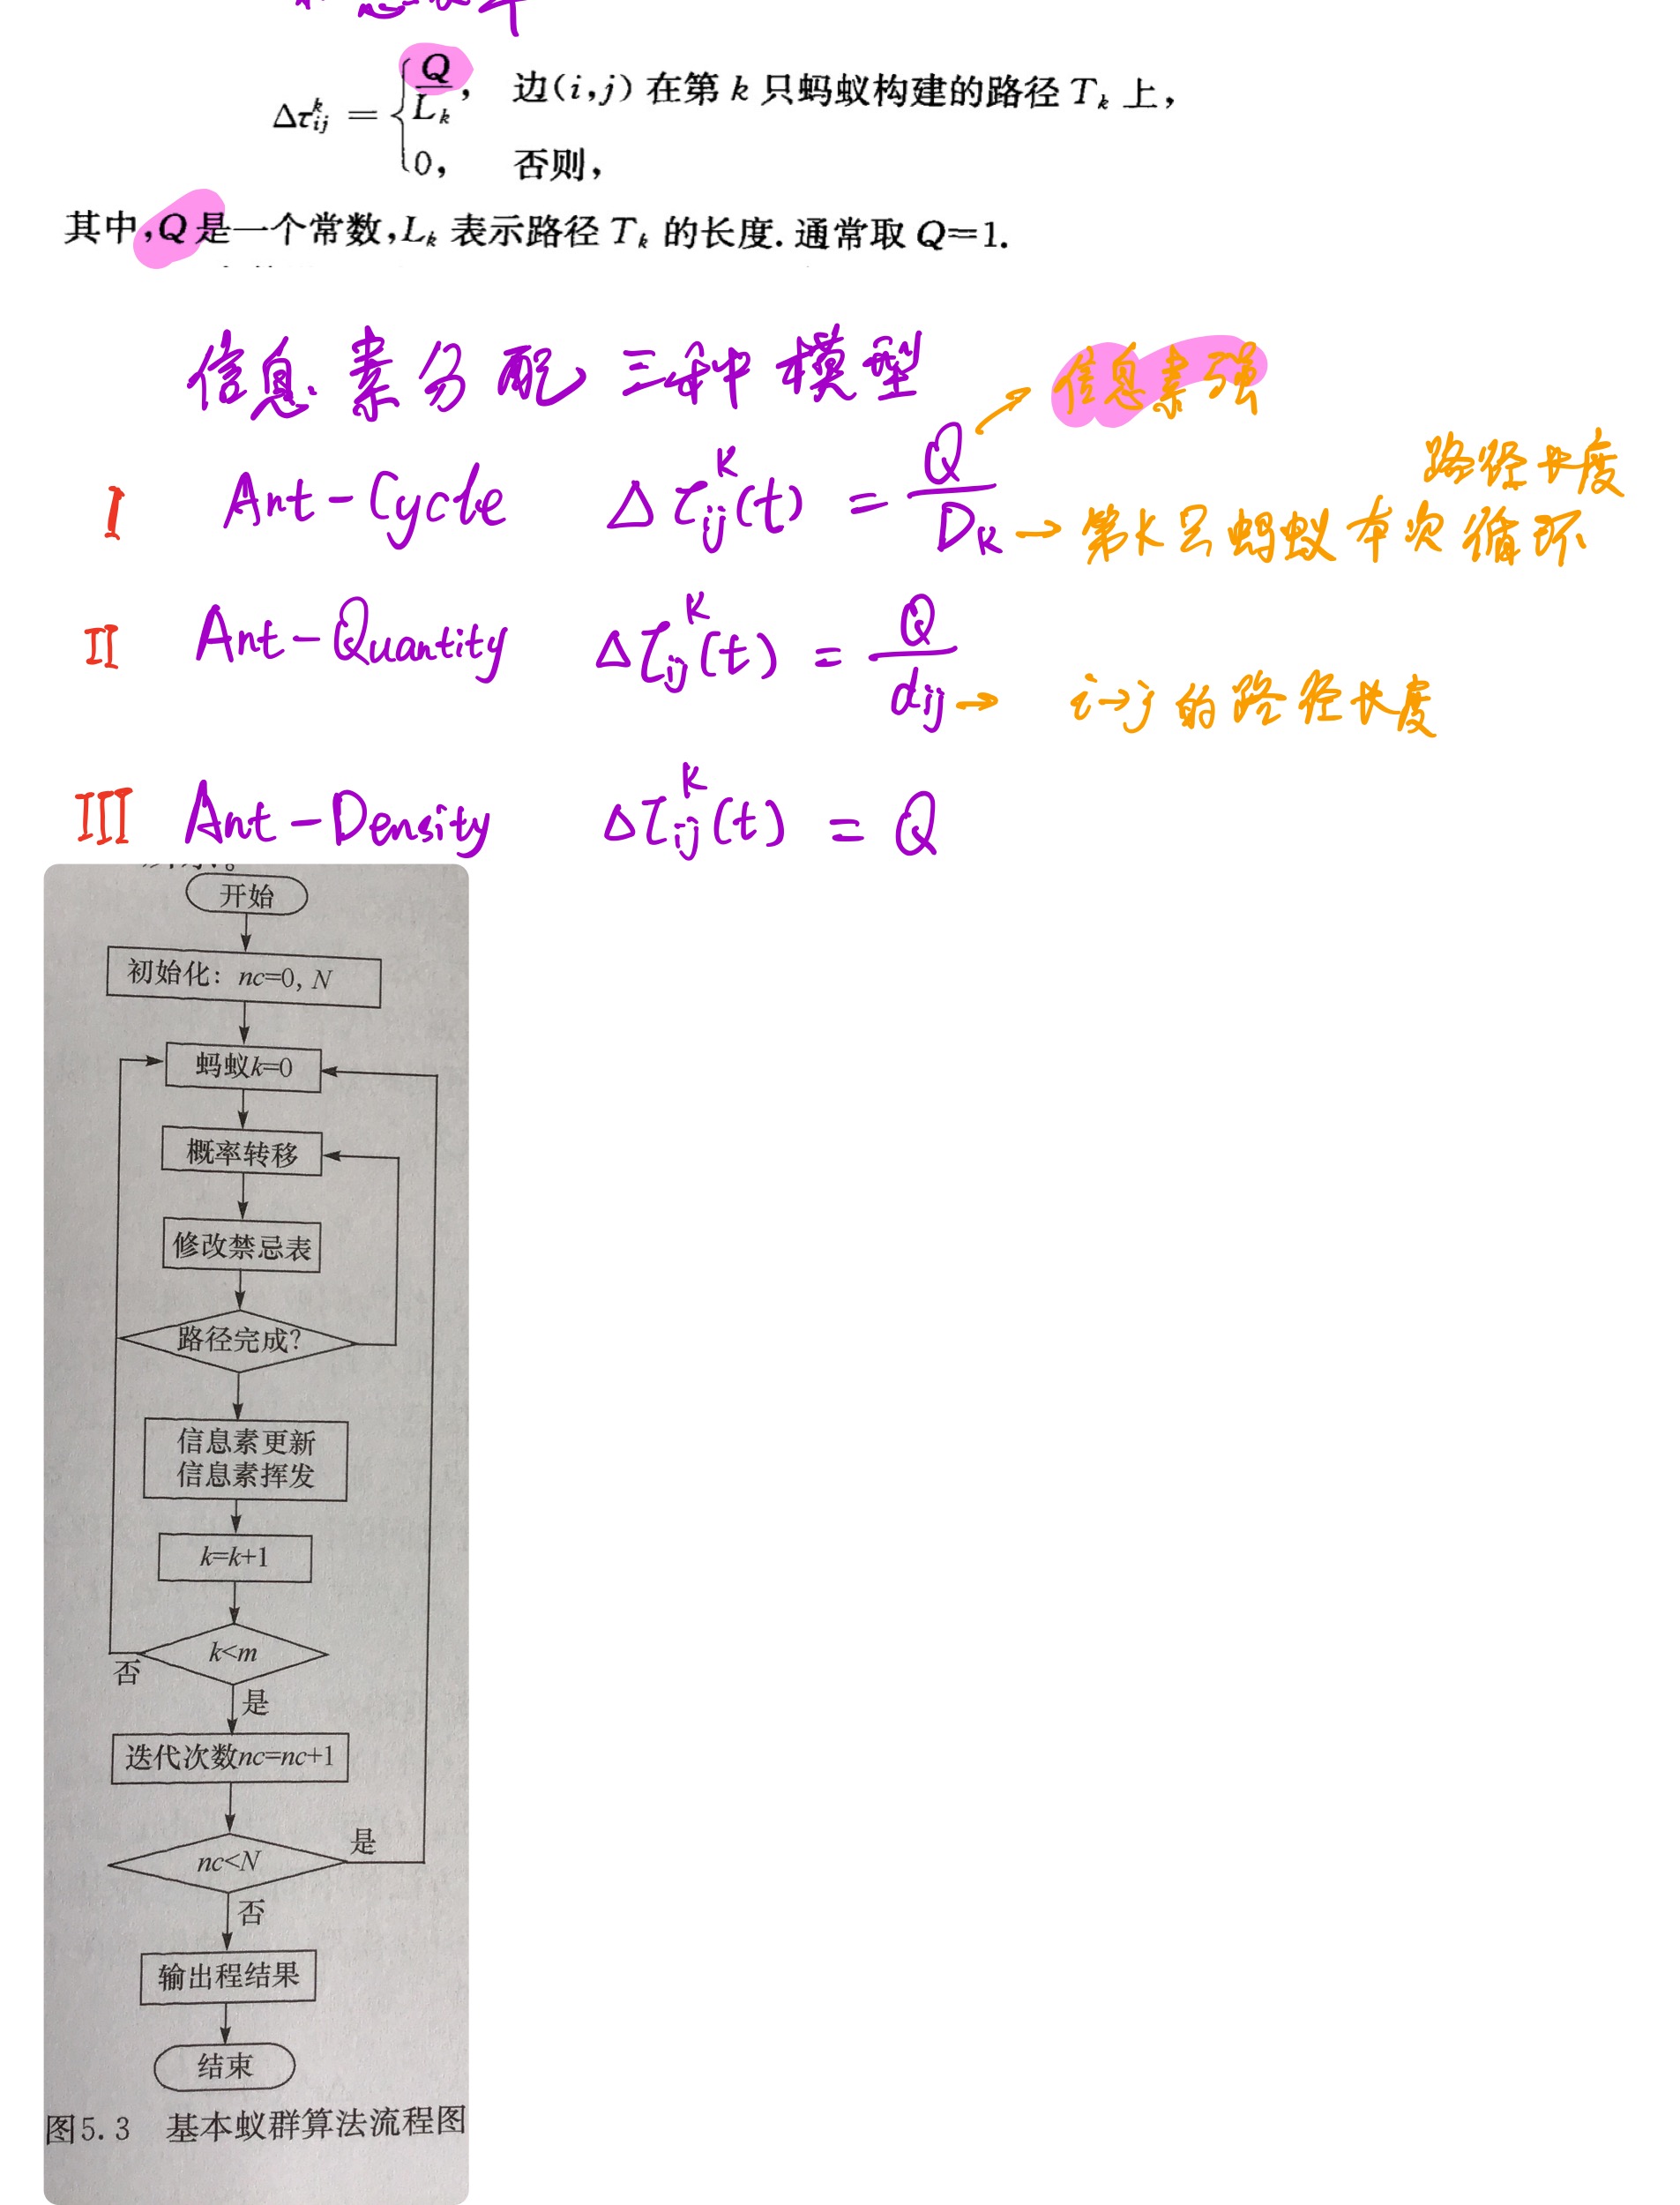 Δτ_{ij}^k = { Q/L_k, 边(i,j)在第k只蚂蚁构建的路径T_k上,
0, 否则,
其中,Q是一个常数,L_k表示路径T_k的长度.通常取Q=1.
信息素分配三种模型
信息素强
路径长度
I Ant-Cycle Δτ_{ij}^k(t) = Q/D_k → 第k只蚂蚁本次循环
II Ant-Quantity Δτ_{ij}^k(t) = Q/d_{ij} → i→j的路径长度
III Ant-Density Δτ_{ij}^k(t) = Q
开始
初始化: nc=0, N
蚂蚁k=0
概率转移
修改禁忌表
路径完成?
信息素更新
信息素挥发
k=k+1
k<m
否
是
迭代次数nc=nc+1
是
nc<N
否
输出程结果
结束
图5.3 基本蚁群算法流程图